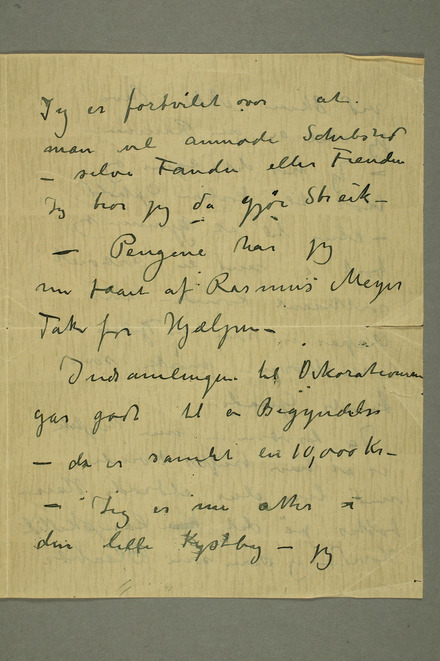 Jeg er fortvilet over at
man vil anmode Schibsted
– selve Fanden eller Fienden
Jeg tror jeg da gjør Streik –
– Pengene har jeg
nu faaet af Rasmus Meyer
Tak for Hjælpen –
Indsamlingen til Dekorationen
gar godt til en Begyndelse
– der er samlet en 10,000 Kr –
– Jeg er nu atter i
den lille Kystby – jeg